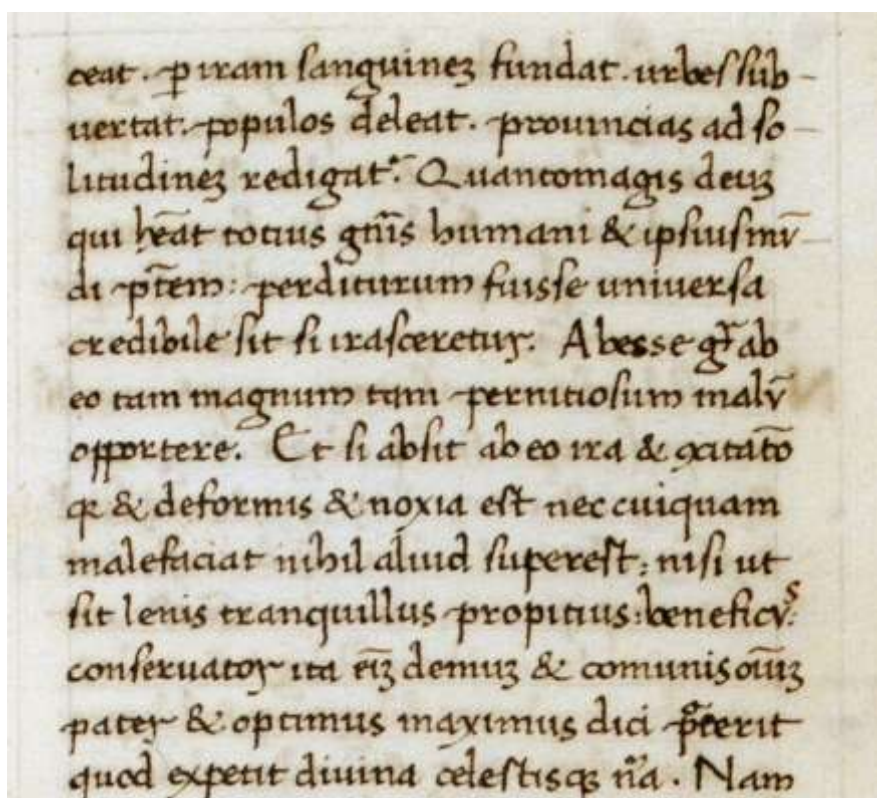 ceat. ꝑ iram sanguineꝫ fundat. urbes sub-
uertat. populos deleat. prouincias ad so-
litudineꝫ redigat. Quantomagis deuꝫ
qui hēat totius gn̄is humani & ipsius mū-
di ptēm: perditurum fuisse uniuersa
credibile sit si irasceretur. Abesse gͬ ab
eo tam magnum tam pernitiosum malū
opportere. Et si absit ab eo ira & ↄcitatō
qꝛ & deformis & noxia est nec cuiquam
malefaciat nihil aliud superest: nisi ut
sit lenis tranquillus propitius: beneficvs:
conseruator ita eīꝫ demuꝫ & comunis oīuꝫ
pater & optimus maximus dici pͦterit
quod expetit diuina celestisqꝫ nͣa. Nam